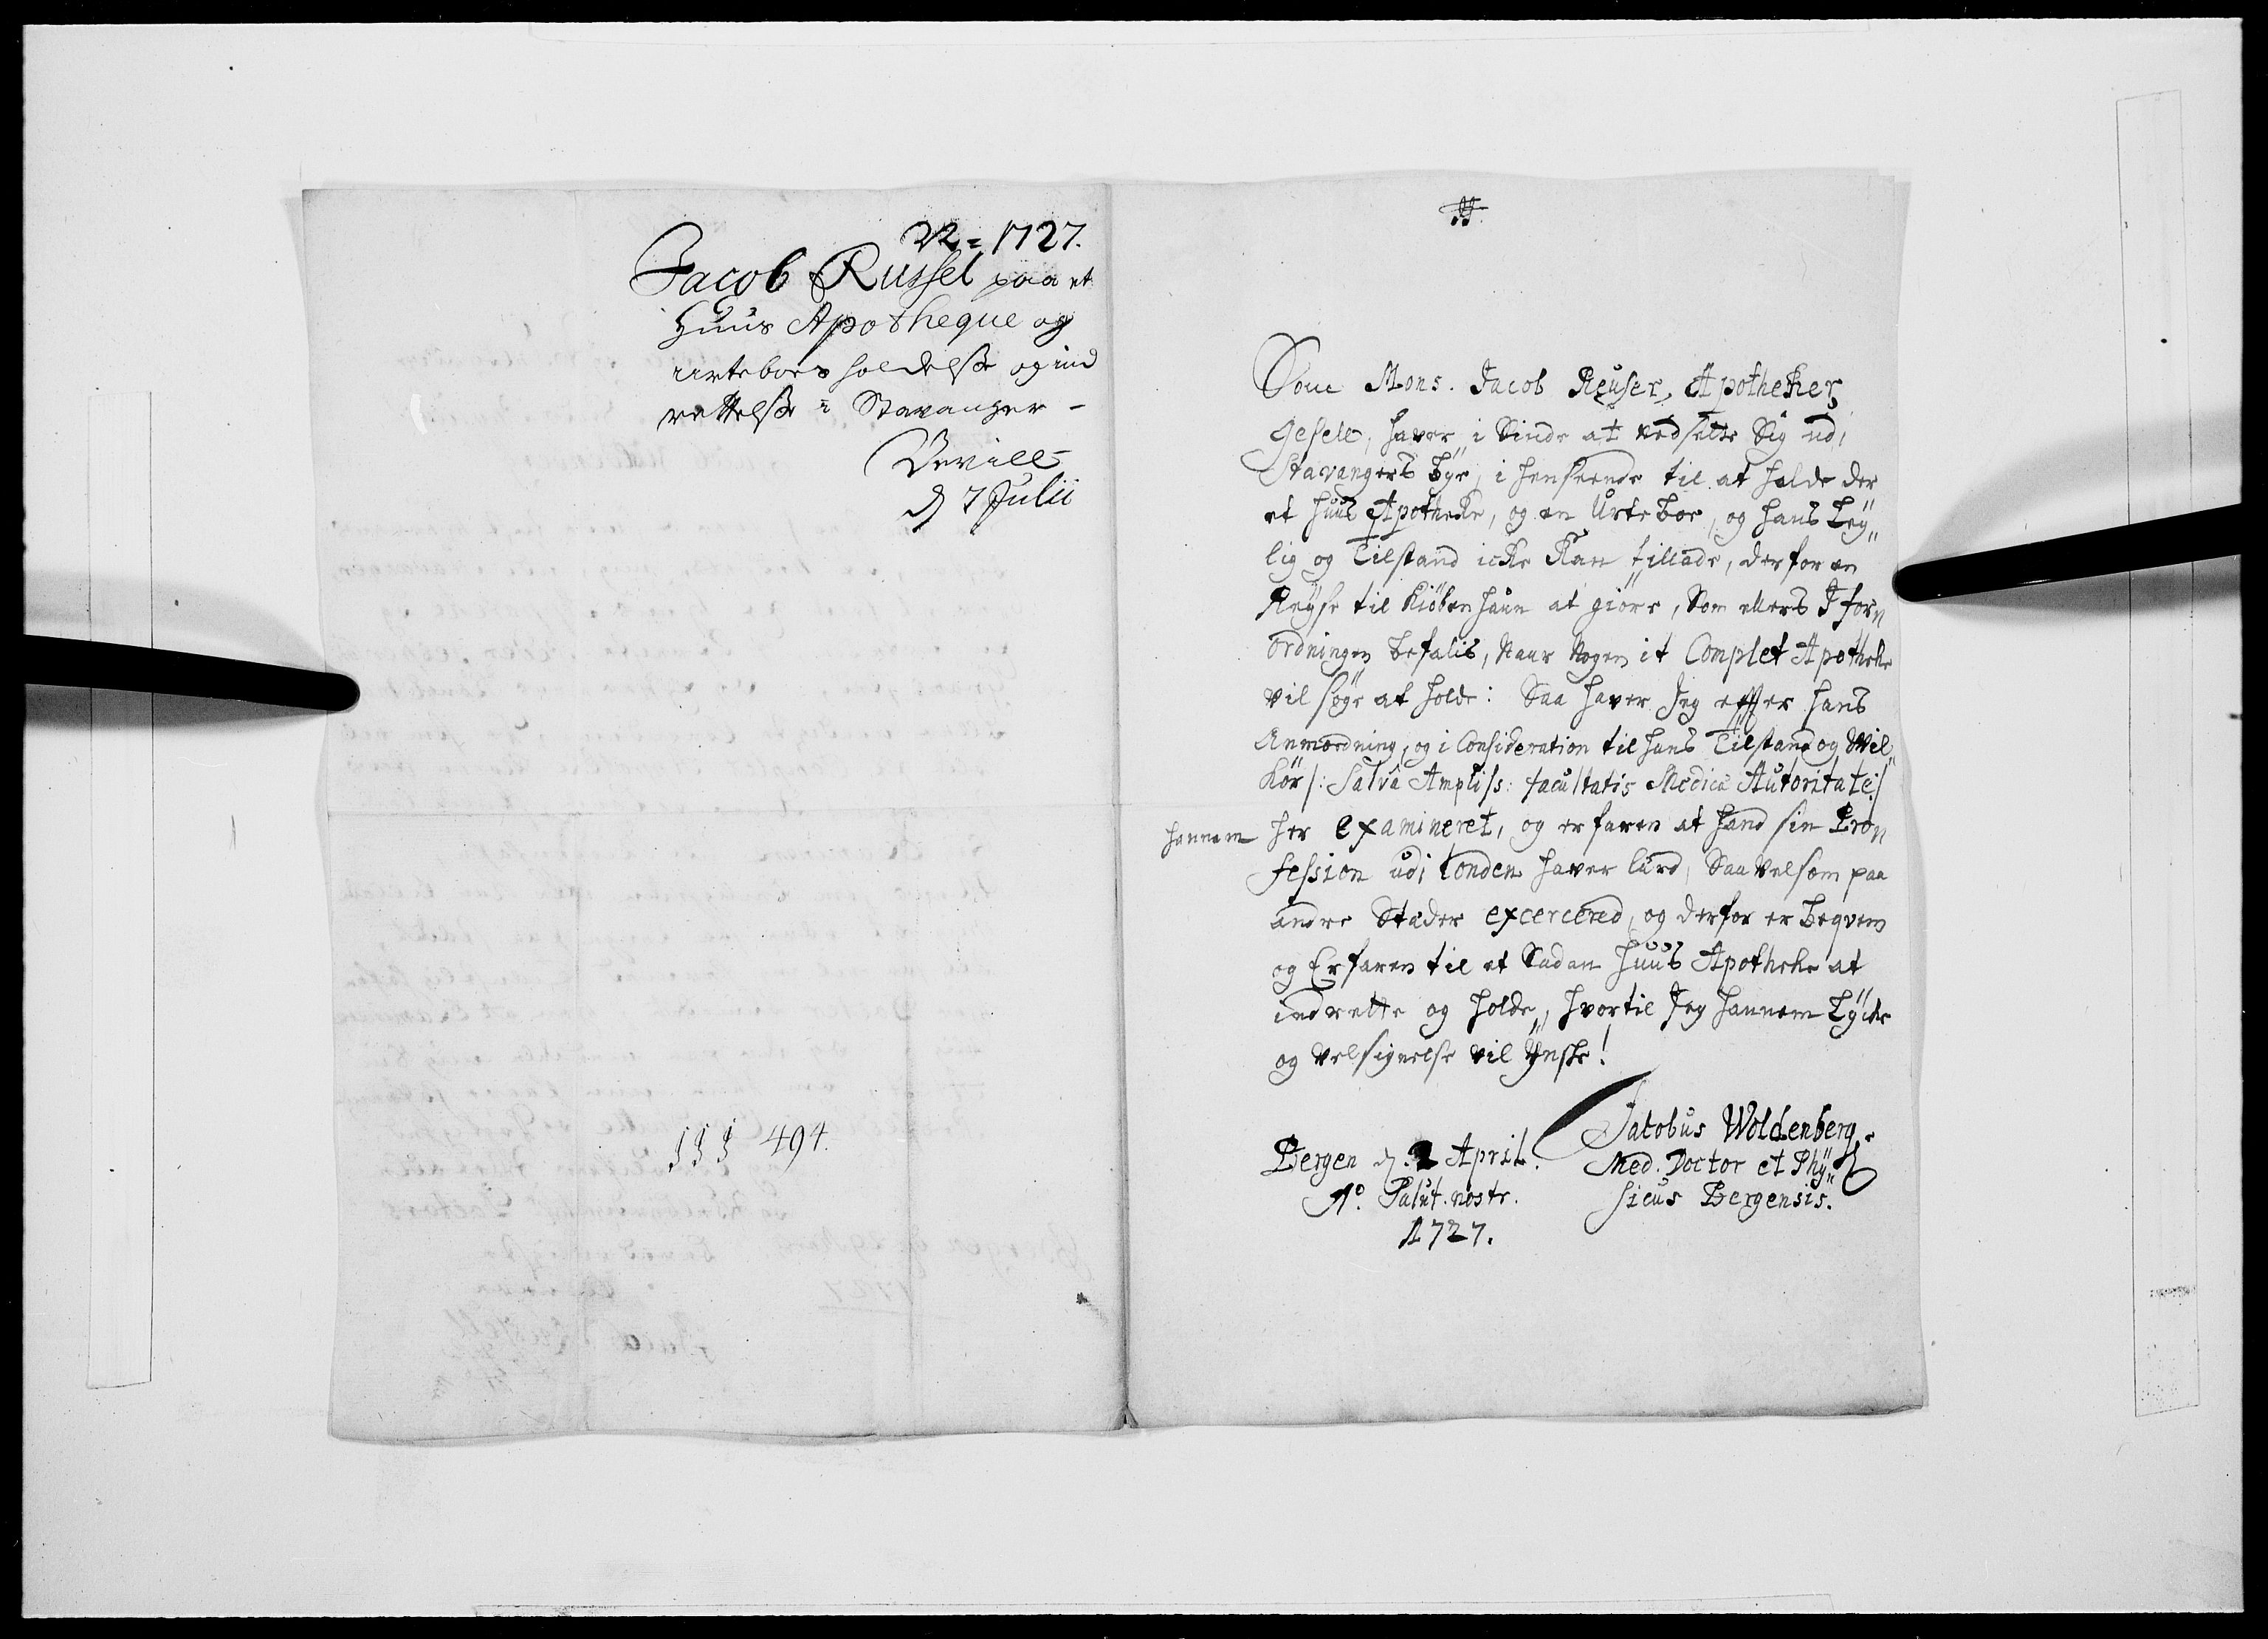 22 = 1727.
Jacob Russel paa et
Huus Apotheque og
urteboes holdelse og ind
rettelse i Stavanger -
Bevilt
d 7 Julii
§§§ 494.
Som Mons. Jacob Reuser, Apotheker
gesell, haver i Sinde at nedsette Sig udi
Stavangers Bye, i henseende til at holde der
et huus Apotheke, og en Urte Boe, og hans Ley„
lig og Tilstand icke Kan tillade, derfor en
Reyse til Kiöbenhaun at giöre, Som ellers I for„
ordningen befalis, Naar Nogen it Complet Apotheke
vil søge at holde: Saa haver Jeg efter hans
Anmodning, og i Consideration til hans Tilstand og Wil„
kör /: Salvâ Ampliss: facultatis Medicæ Autoritate :/
hannem her examineret, og erfaren at hand sin Pro„
fession udi Londen haver lærd, Saa velsom paa
andre Stæder excercered, og derfor er Beqvem
og Erfaren til et Sadan Huus Apotheke at
indrette og holde, hvortil Jeg hannem Lycke
og velsignelse vil Ynske!
Bergen d. 2 April.
Aº. Salut. nostr.
1727.
Jacobus Woldenberg
Med. Doctor et Phy„
sicus Bergensis.